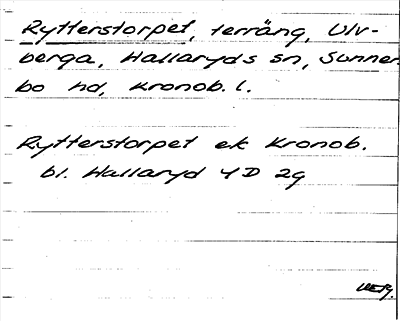 Rytterstorpet, terräng, Ulv-
berga, Hallaryds sn, Sunner-
bo hd, Kronob. l.
Rytterstorpet ek Kronob.
bl. Hallaryd 4D 2g